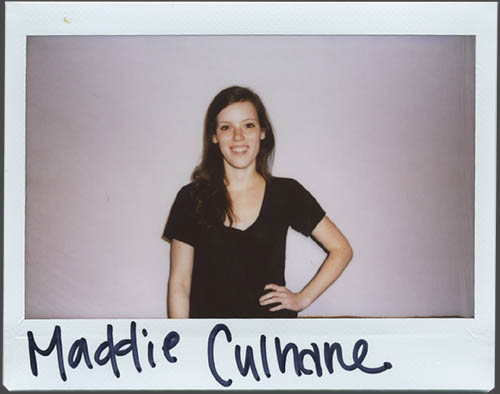 Maddie Culhane